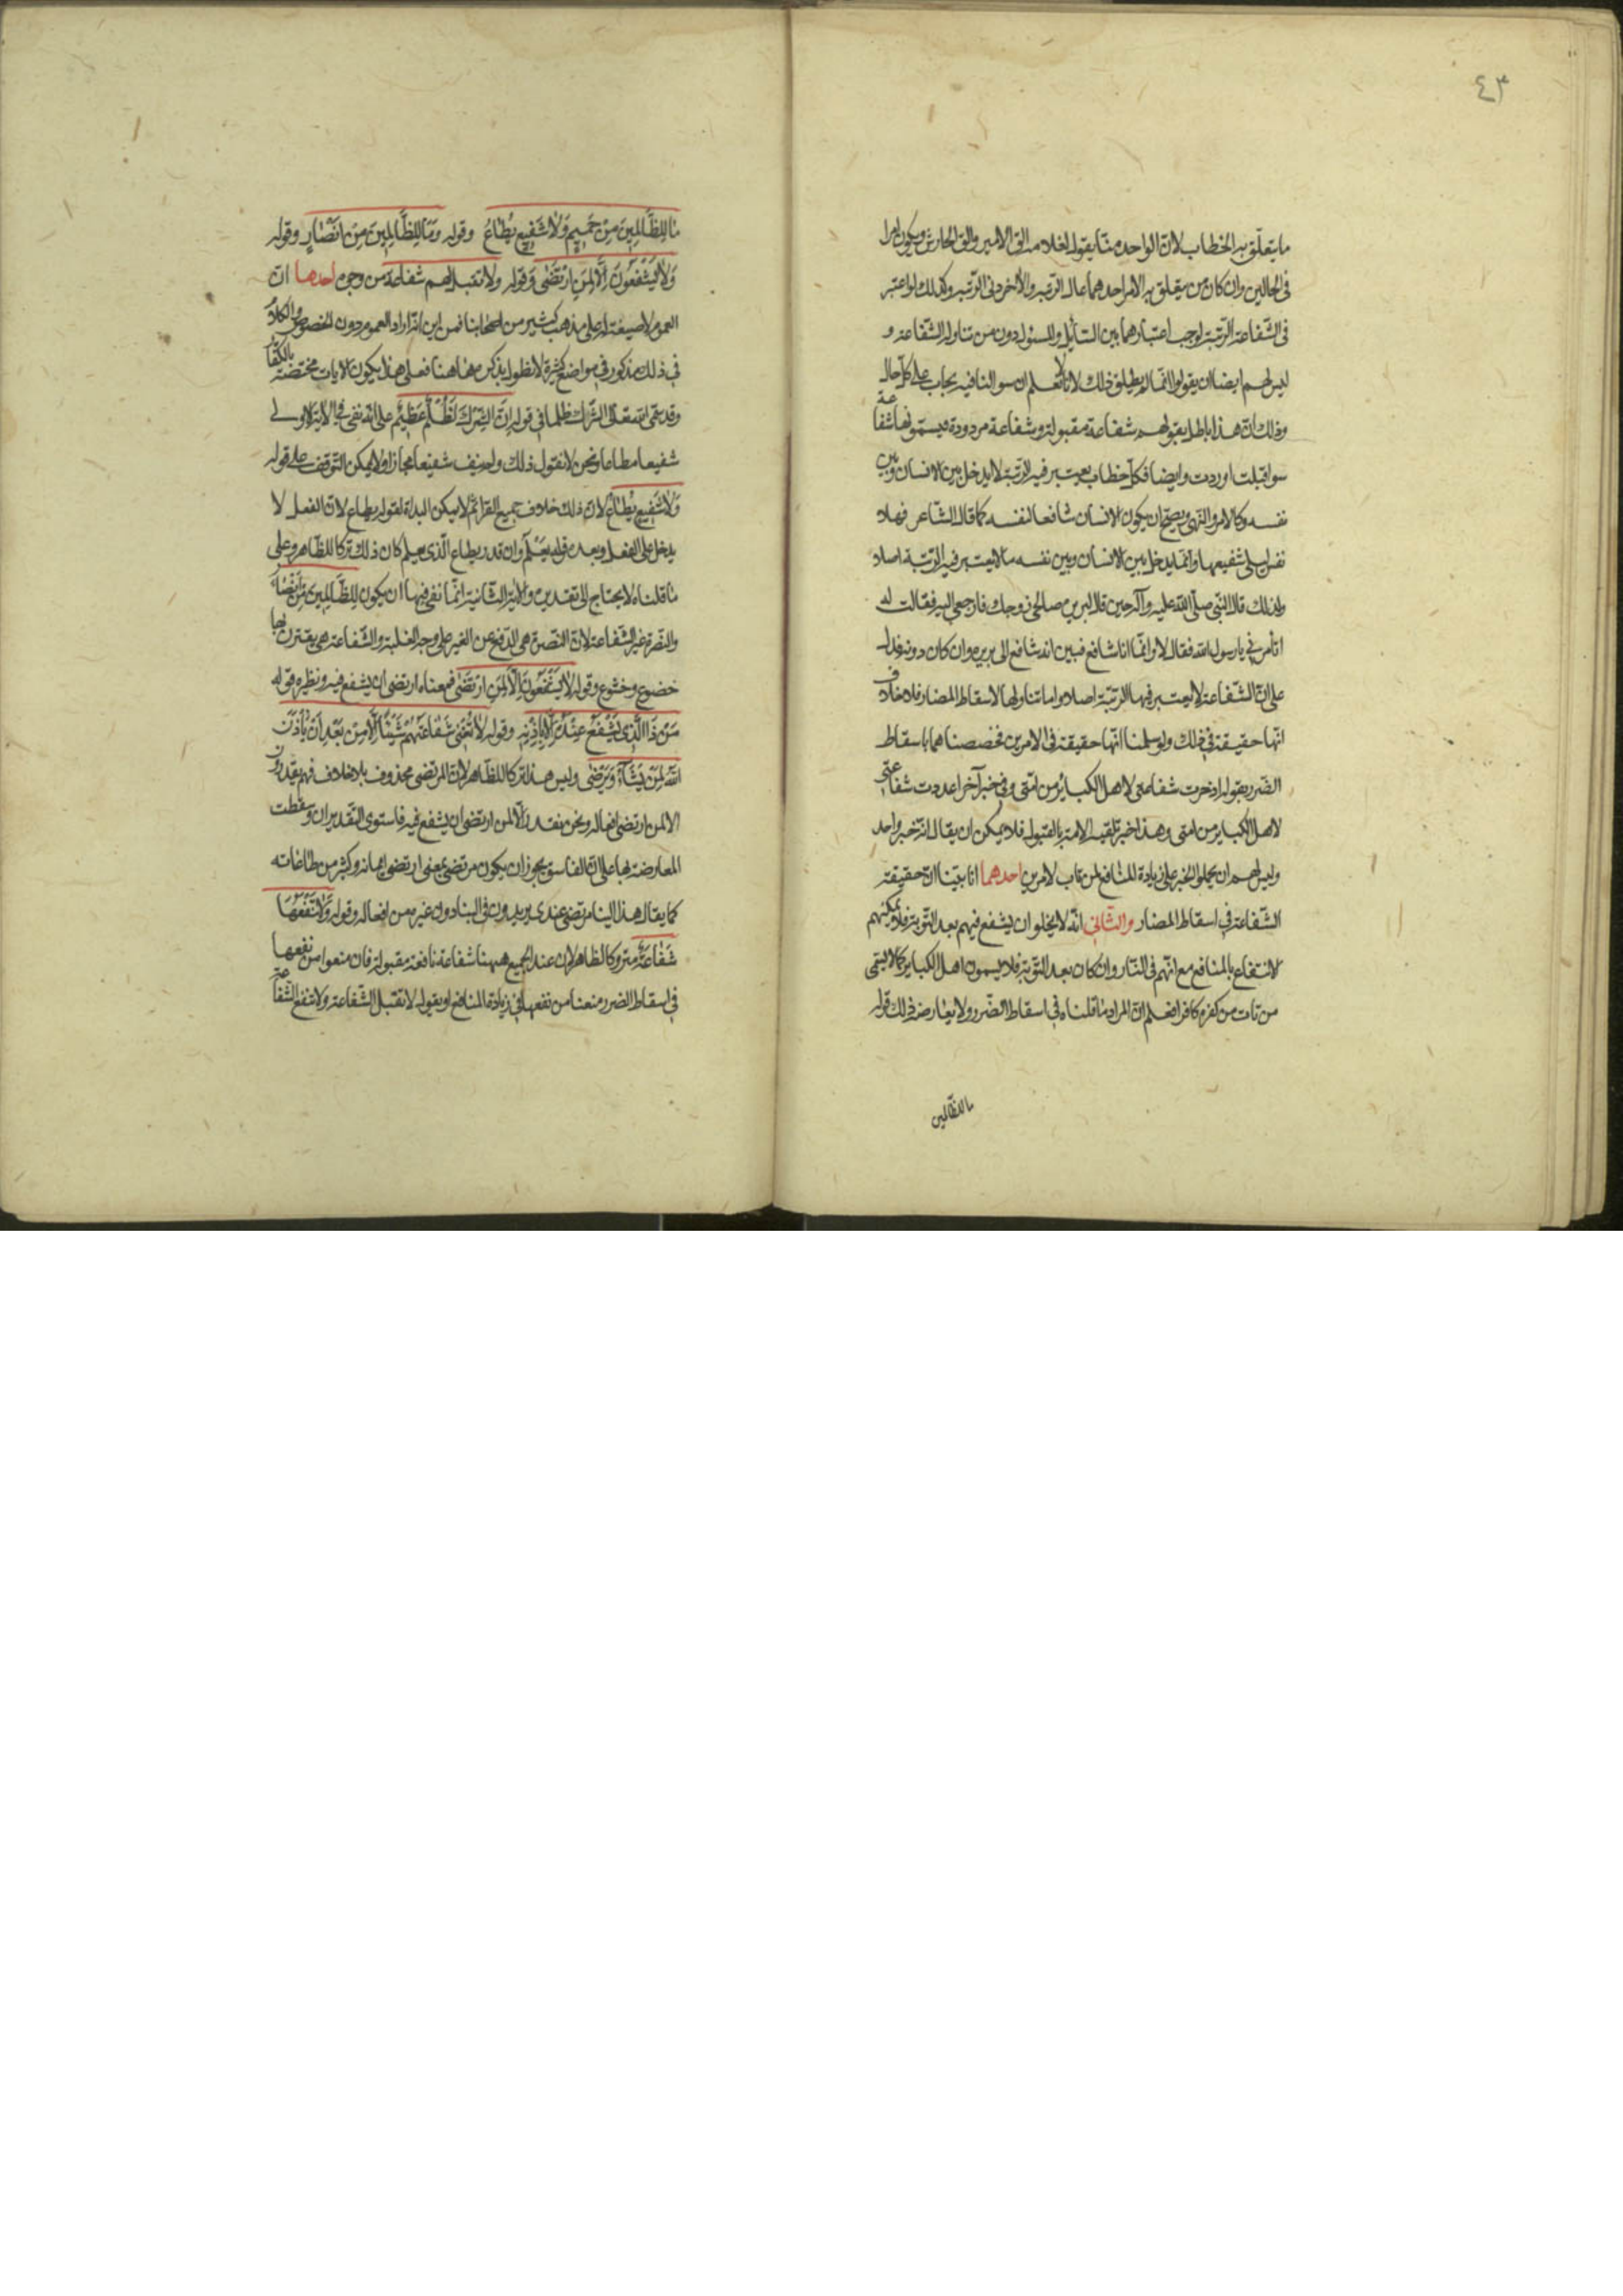 ٤٣
ما يتعلّق به الخطاب لانّ الواحد منّا يقول لغلامه الق الامير والق الحارس ويكون امرا
فى الحالين وان كان من يتعلق به الامر احدهما عالى الرتبه والآخر دنى الرّتبه وكذلك لو اعتبر
فى الشّفاعة الرّتبة لوجب اعتبارهما بين السّائل والمسئول دون من تناوله الشّفاعة و
ليس لهم ايضا ان يقولوا انّما لم يطلق ذلك لانّا لا نعلم ان سوالنا فيه يجاب على كلّ حال
وذلك انّ هذا باطل بقولهم شفاعة مقبولة وشفاعة مردودة فيسمّونها شفاعة
سواء قبلت او ردت وايضا فكلّ خطاب يعتبر فيه الرّتبة لا يدخل بين الانسان وبين
نفسه وكالامر والنّهى ويصحّ ان يكون الانسان شافعا لنفسه كما قال الشّاعر فهلا
نفس ليلى شفيعها وانّما يدخل بين الانسان وبين نفسه ما لا يعتبر فيه الرّتبة اصلا
ولذلك قال النّبى صلّى اللّه عليه وآله حين قال لبريرة صالحى زوجك فارجعى اليه فقالت له
اتأمرنى يا رسول اللّه فقال لا وانّما انا شافع فبين انه شافع الى بريرة وان كان دونه فدل
على انّ الشّفاعة لا يعتبر فيها الرّتبة اصلا واما تناولها لاسقاط المضار فلا خلاف
انّها حقيقة فى ذلك ولو سلمنا انّها حقيقة فى الامرين فخصصناهما باسقاط
الضّرر بقوله ادخرت شفاعتى لاهل الكبائر من امّتى وفى خبر آخر اعددت شفاعتى
لاهل الكباير من امتى وهذا خبر تلقيه الامة بالقبول فلا يمكن ان يقال انّه خبر واحد
وليس لهم ان يحملوا الخبر على زيادة المنافع لمن تاب لامرين احدهما انا بيّنا انّ حقيقة
الشّفاعة فى اسقاط المضار والثّانى انّه لا يخلو ان يشفع فيهم بعد التّوبة فلا يمكنهم
الانتفاع بالمنافع مع انّهم فى النّار وان كان بعد التّوبة فلا يسمون اهل الكباير كما لا يسمى
من تاب من كفره كافرا فعلم انّ المراد ما قلناه فى اسقاط الضّرر ولا يعارض ذلك قوله
ما للظّالمين
مَا لِلظَّالِمِينَ مِنْ حَمِيمٍ وَلَا شَفِيعٍ يُطَاعُ وقوله وَمَا لِلظَّالِمِينَ مِنْ اَنْصَارٍ وقوله
وَلَا يَشْفَعُونَ اِلَّا لِمَنِ ارْتَضَى وقوله ولا تقبل لهم شفاعة من وجوه احدها انّ
العموم لا صيغة له على مذهب كثير من اصحابنا فمن اين انّه اراد العموم دون الخصوص والكلام
فى ذلك مذكور فى مواضع كثيرة لا نطول بذكرها هاهنا فعلى هذا يكون الآيات مختصّة بالكفّار
وقد سمّى اللّه تعالى الشّرك ظلما فى قوله اِنَّ الشِّرْكَ لَظُلْمٌ عَظِيمٌ على انّه نفى فى الآية الاولى
شفيعا مطاعا ونحن لا نقول ذلك ولم ينف شفيعا مجازا ولا يمكن التّوقف على قوله
وَلَا شَفِيعٍ يُطَاعُ لانّ ذلك خلاف جميع القرّاء ثم لا يمكن البداة لقوله يطاع لانّ الفعل لا
يدخل على الفعل وبعده قوله يَعْلَمُ وان قدر يطاع الّذى يعلم كان ذلك تركا للظّاهر وعلى
ما قلناه لا يحتاج الى تقدير والآية الثّانية انّما نفى فيها ان يكون لِلظَّالِمِينَ مِنْ اَنْصَار
والنّصرة غير الشّفاعة لانّ النّصرة هى الدّفع عن الغير على وجه الغلبة والشّفاعة هى يقترن بها
خضوع وخشوع وقوله لَا يَشْفَعُونَ اِلَّا لِمَنِ ارْتَضَى فمعناه ارتضى ان يشفع فيه ونظيره قوله
مَنْ ذَا الَّذِى يَشْفَعُ عِنْدَهُ اِلَّا بِاِذْنِهِ وقوله لَا تُغْنِى شَفَاعَتُهُمْ شَيْئًا اِلَّا مِنْ بَعْدِ اَنْ يَأْذَنَ
اللّهُ لِمَنْ يَشَاءُ وَيَرْضَى وليس هذا تركا للظّاهر لانّ المرتضى محذوف بلا خلاف فهم يقدرون
الا لمن ارتضى افعاله ونحن نقدر الّا لمن ارتضى ان يشفع فيه فاستوى التّقديران وسقطت
المعارضة بها على انّ الفاسق يجوز ان يكون مرتضى بمعنى ارتضى ايمانه وكثير من طاعاته
كما يقال هذا البنا مرتضى عندى يريدون فى البنا دون غيره من افعاله وقوله وَلَا تَنْفَعُهَا
شَفَاعَةٌ متروكا لظاهر لانّ عند الجميع ههنا شفاعة نافعة مقبولة فان منعوا من نفعها
فى اسقاط الضرر منعنا من نفعها فى زيادة المنافع او بقوله لا تقبل الشّفاعة ولا تنفع الشّفاعة